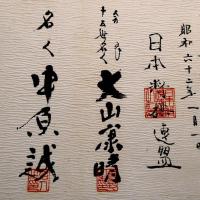 昭和六十二年一月一
日本将棋連盟
十五世名人
大山康晴
名人
中原誠